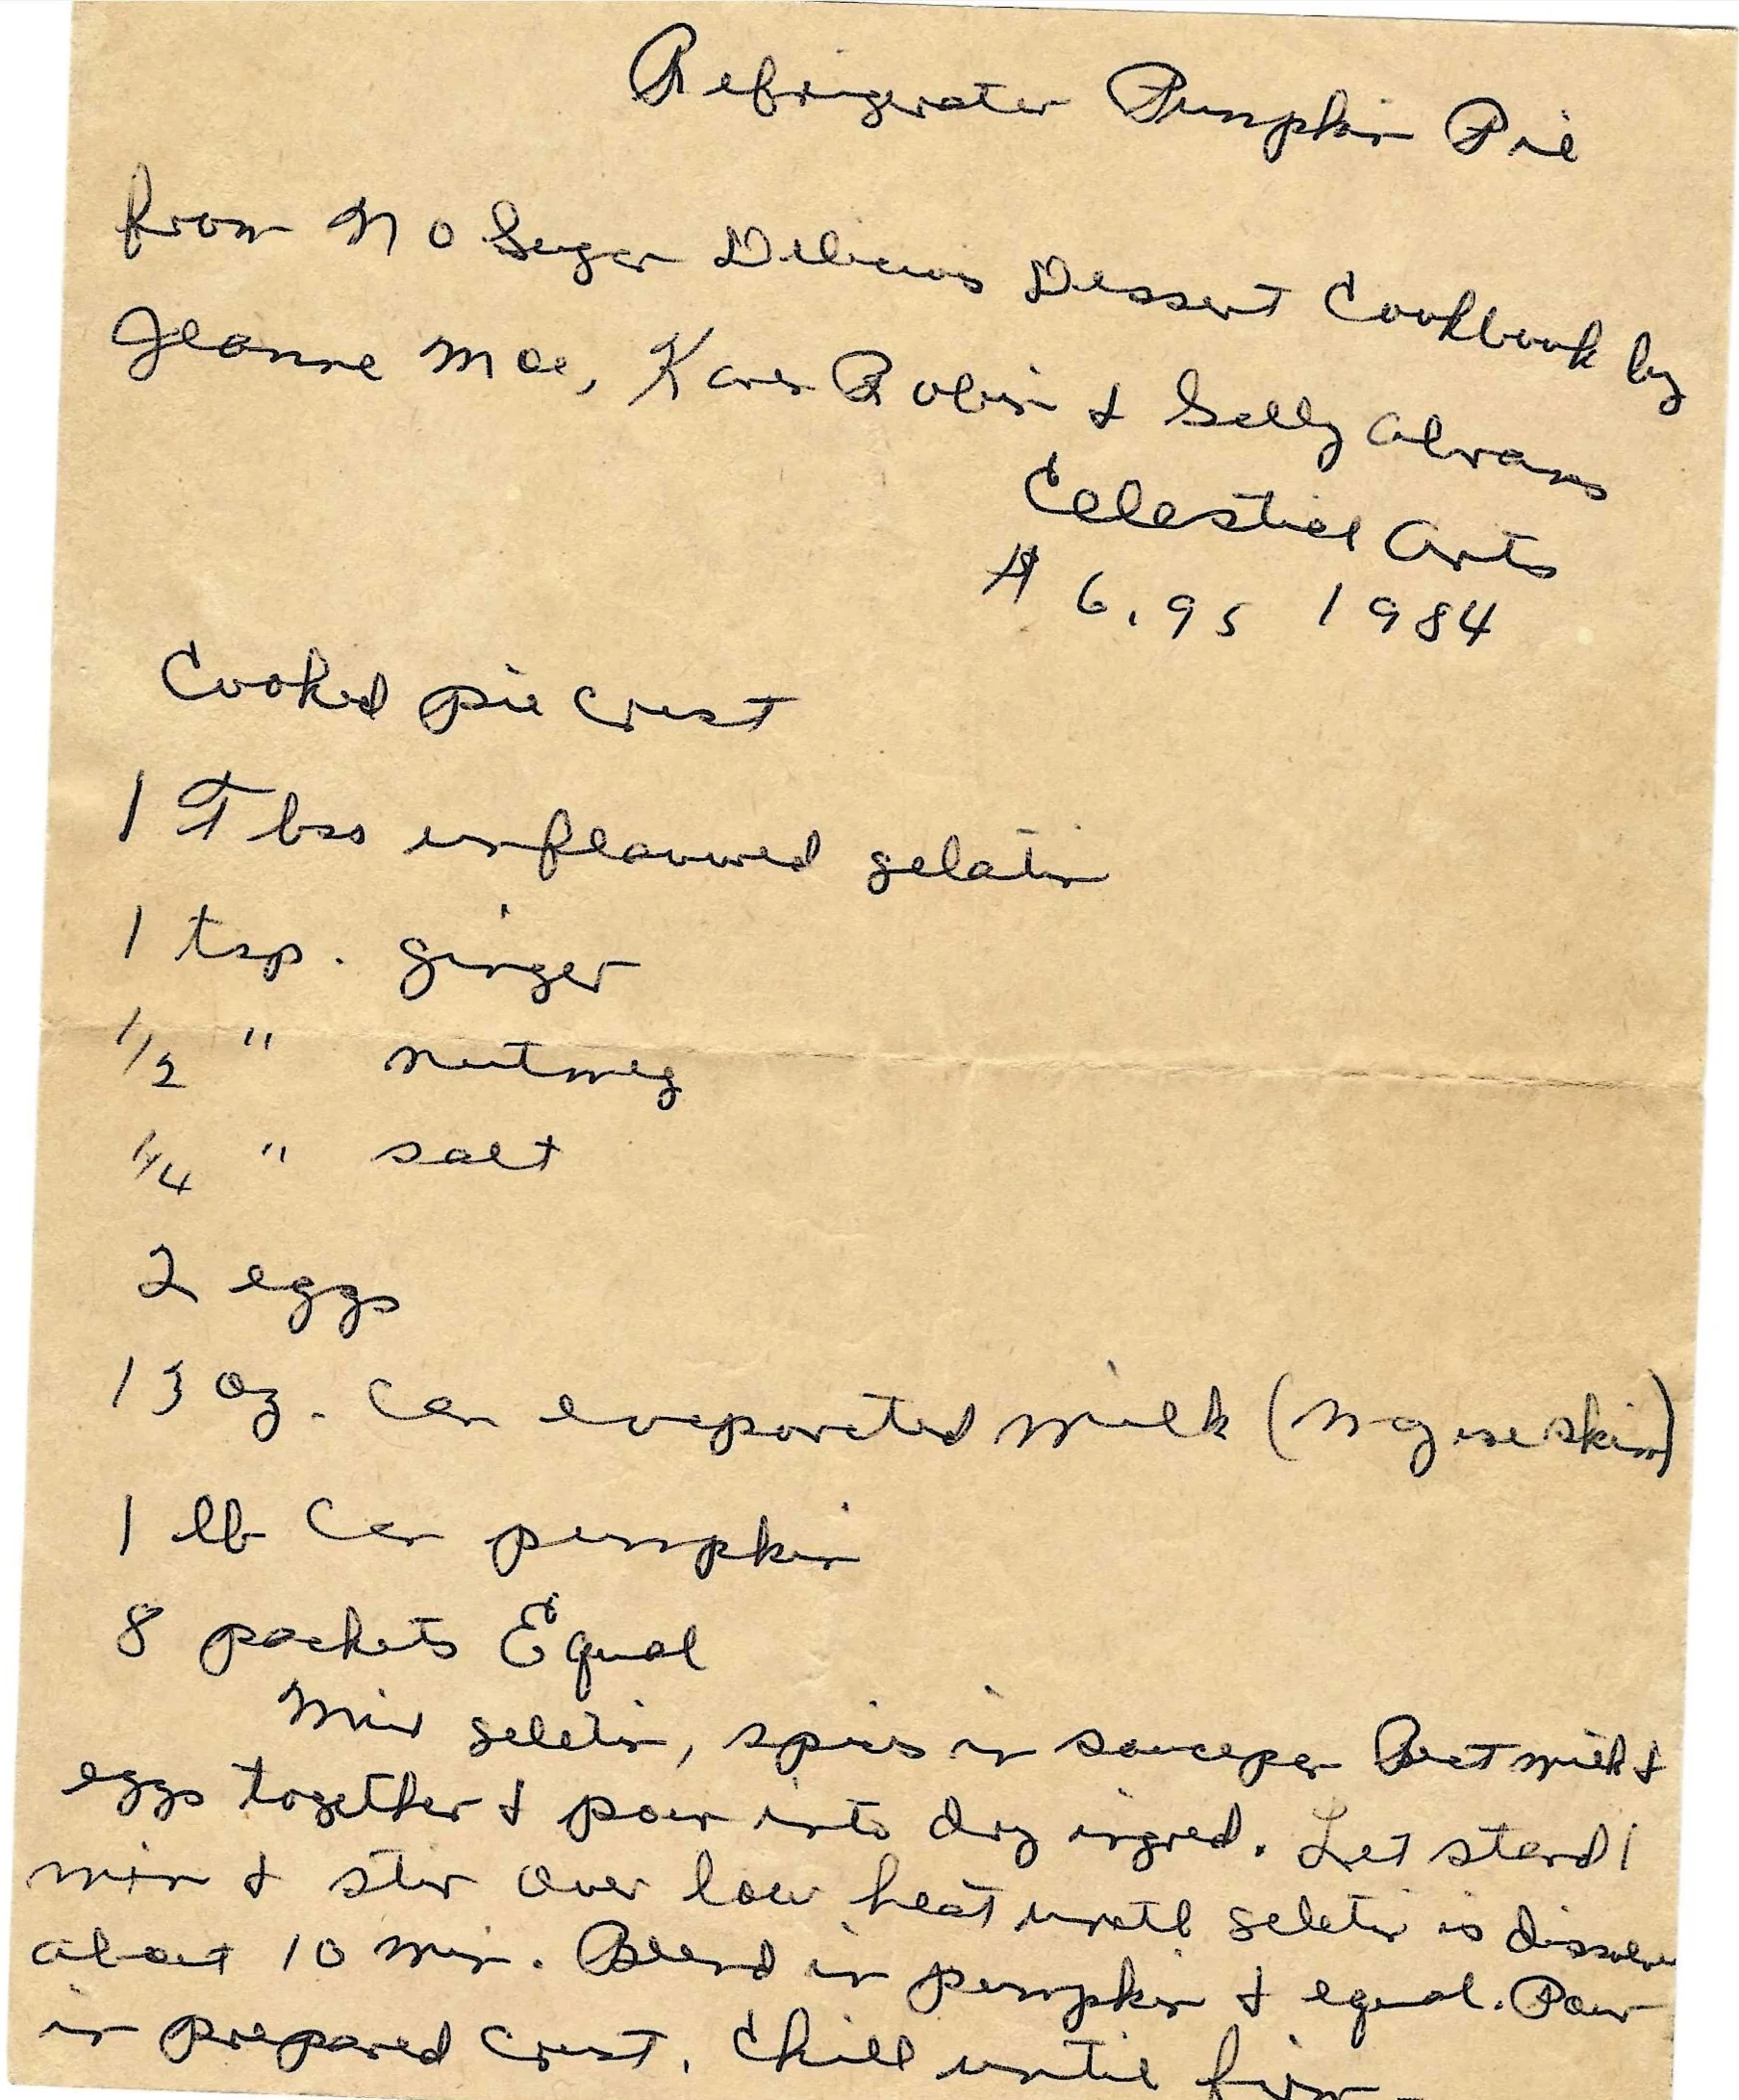 Refrigerator Pumpkin Pie
from No Sugar Delicious Dessert Cookbook by
Jeanne Mae, Karen Robin & Sally Abrams
Celestial Arts
$6.95 1984
Cooked pie crust
1 Tbso unflavored gelatin
1 tsp. ginger
1/2 " nutmeg
1/4 " salt
2 eggs
13 oz. can evaporated milk ( use skim)
1 lb can pumpkin
8 packets Equal
Mix gelatin, spices in saucepan Beat milk &
eggs together & pour into dry ingred. Let stand 1
min & stir over low heat until gelatin is dissolve
about 10 min. Blend in pumpkin & equal. Pour
in prepared crust. Chill until firm.